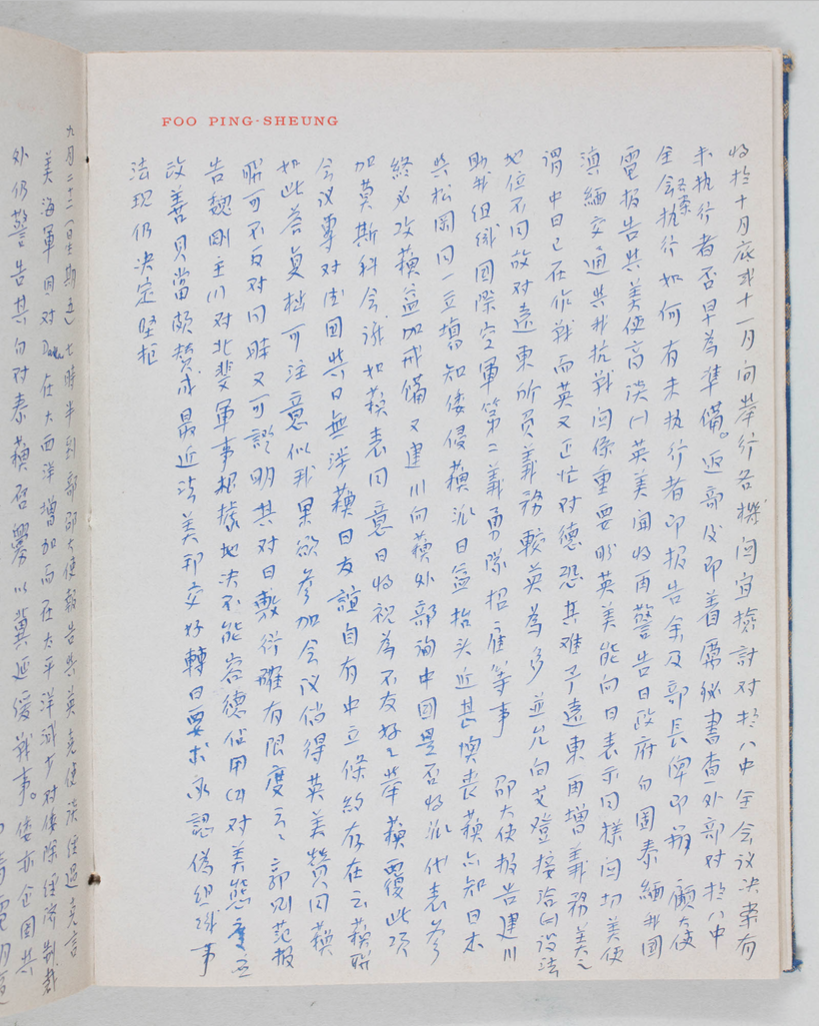 FOO PING-SHEUNG
將於十月底或十一月間舉行各機關宜檢討對於八中全會議決案有
未執行者否早為準備。返部後即着 秘書查外部對於八中
全會決案執行如何有未執行者即報告余及部長俾即辦 顧大使
電報告與美使高談(一)英美聞將再警告日政府勿圖泰緬我國
滇緬交通與我抗戰關係重要盼英美能向日表示同樣關切美使
謂中日已在作戰而英又正忙对德恐其难于遠東再增義務美之
地位不同故对遠東所負義務較英為多並允向艾登接洽(二)設法
助我組織國際空軍第二義勇隊招雇等事 邵大使報告建川
與松岡同一立場知倭侵蘇派日益抬头近甚懊喪蘇亦知日本
終必攻蘇益加戒備又建川向蘇外部詢中國是否將派代表參
加莫斯科会議如蘇表同意日將視為不友好之舉蘇覆此項
会议專对德國與日無涉蘇日友誼自有中立條約存在云蘇联
如此答复極可注意似我果欲參加会议倘得英美贊同蘇
联可不反对同時又可證明其对日敷衍確有限度云云 郭則范報
告魏剛主(一)对北斐軍事根據地决不能容德佔用(二)对美態度並
改善貝當頗贊成最近法美邦交好轉日要求承認偽組織事
法現仍决定堅拒
九月二十二(日星期五)七時半到部邵大使報告與英克使談經過克言
美海軍因对 在大西洋增加而在太平洋減少对倭除經濟制裁
外仍警告其勿对泰蘇否 以冀延緩戰事。倭亦企圖與